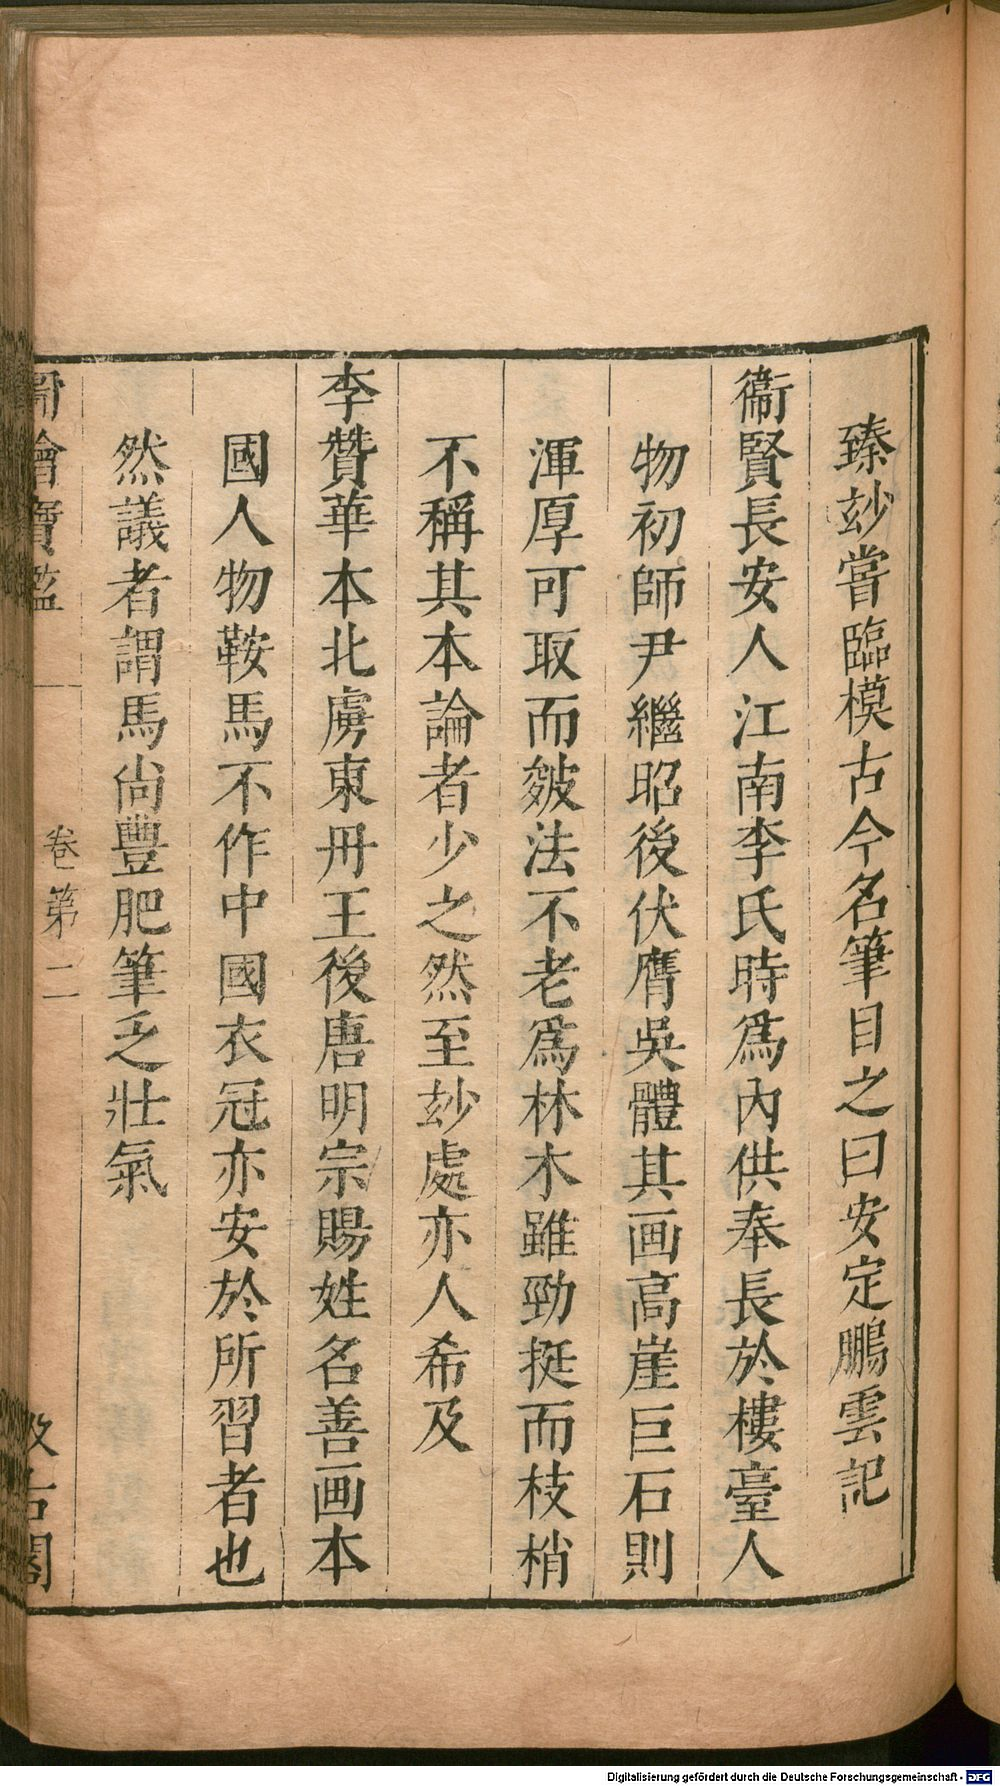 臻玅嘗臨模古今名筆目之曰安定鵬雲記
衞賢長安人江南李氏時爲內供奉長於樓臺人
物初師尹繼昭後伏膺吳體其画高崖巨石則
渾厚可取而皴法不老爲林木雖勁挺而枝梢
不稱其本論者少之然至玅處亦人希及
李贊華本北虜東冊王後唐明宗賜姓名善画本
國人物鞍馬不作中國衣冠亦安於所習者也
然議者謂馬尙豐肥筆乏壯氣
圖繪寶鑑
卷第二
汲古閣
Digitalisierung gefördert durch die Deutsche Forschungsgemeinschaft - DFG